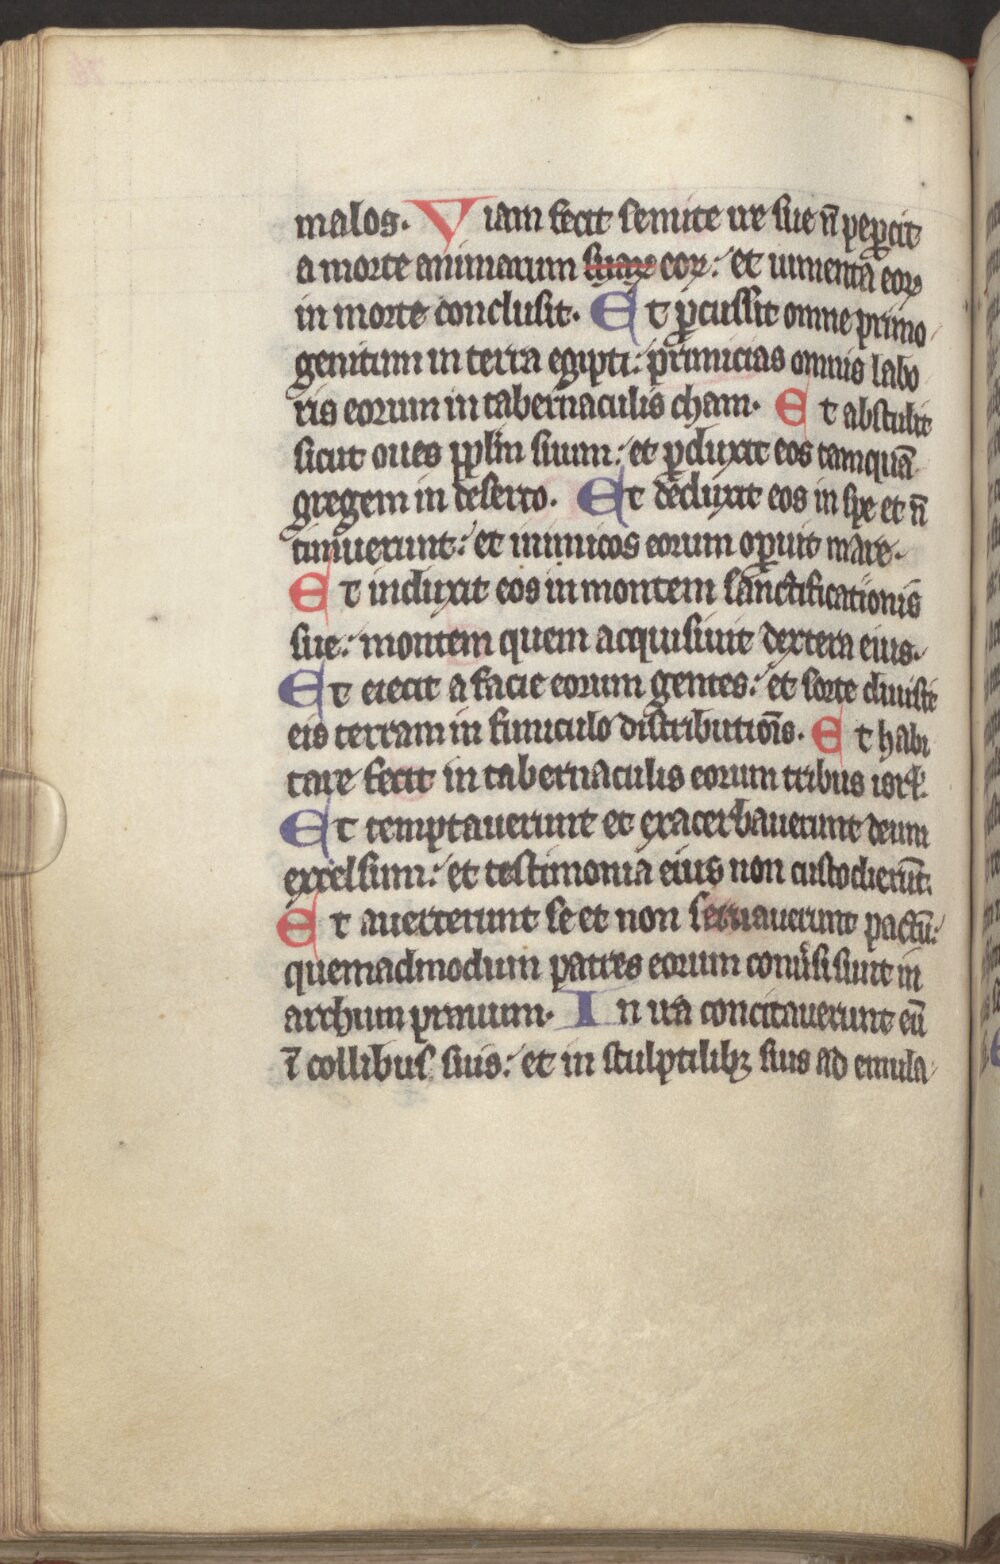 malos. Viam fecit semite ire sue n̄ peꝑcit
a morte animarum suaꝝ eoꝝ: et iumenta eoꝝ
in morte conclusit. Et ꝑcussit omne primo
genitum in terra egipti: primicias omnis labo
ris eorum in tabernaculis cham. Et abstulit
sicut oues pplm̄ suum: et ꝑduxit eos tamquā
gregem in deserto. Et deduxit eos in spe et n̄
timuerunt: et inimicos eorum oꝑuit mare.
Et induxit eos in montem sanctificationis
sue: montem quem acquisiuit dextera eius.
Et eiecit a facie eorum gentes: et sorte diuisit
eis terram in funiculo distributiōis. Et habi
tare fecit in tabernaculis eorum tribus isrl̄.
Et temptauerunt et exacerbauerunt deum
excelsum: et testimonia eius non custodierūt.
Et auerterunt se et non seruauerunt pactū:
quemadmodum patres eorum conuˀsi sunt in
archum prauum. In ira concitauerunt eū
ī collibus suis: et in sculptilibꝫ suis ad emula